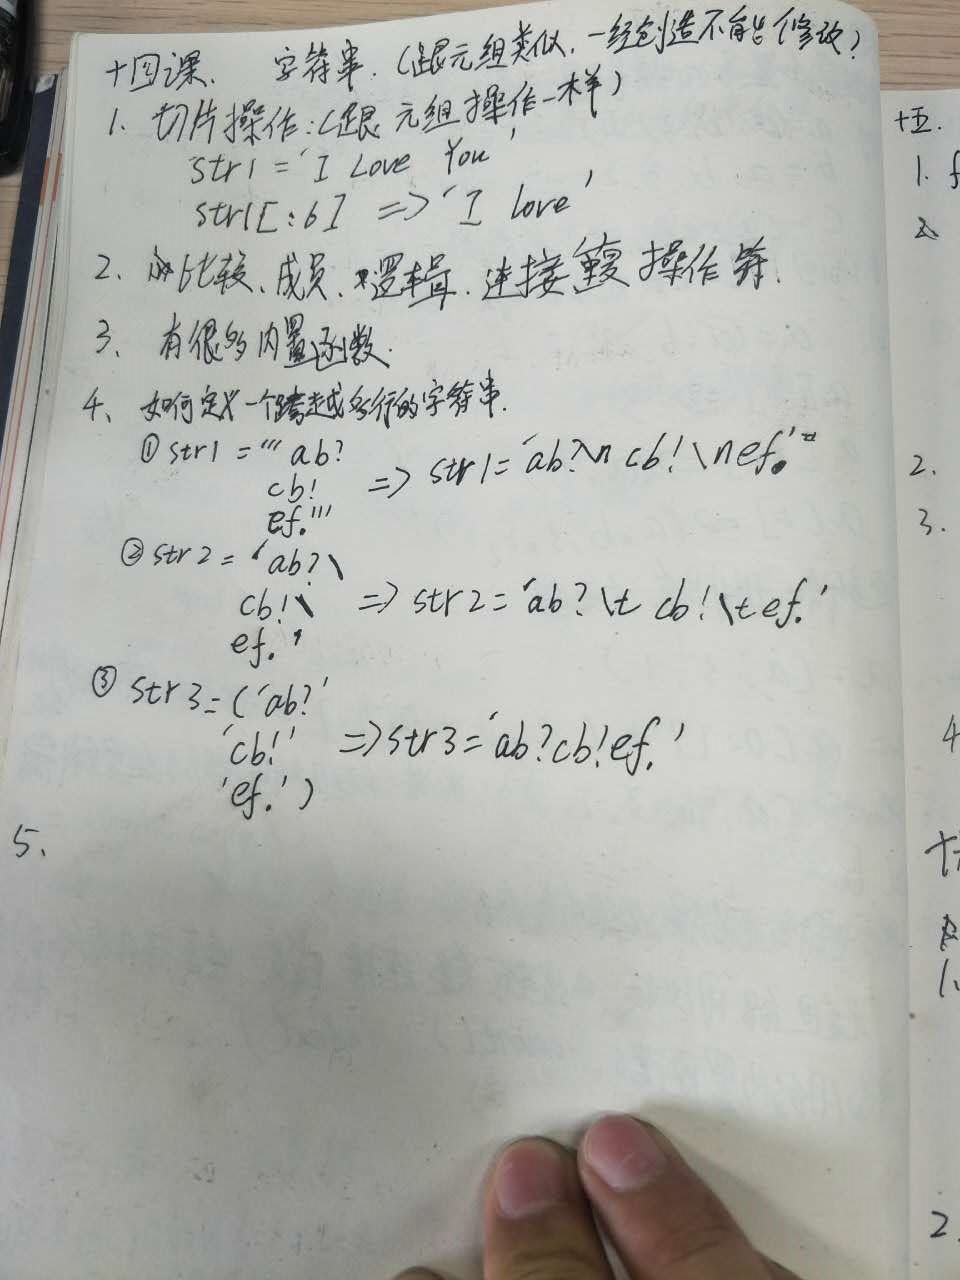 十四课、 字符串.(跟元组类似,一经创造不能修改)
1. 切片操作:(跟元组操作一样)
str1 = 'I Love You'
str1[:6] => 'I love'
2、比较、成员、逻辑、连接、重复操作符.
3、有很多内置函数.
4、如何定义一个跨越多行的字符串.
① str1 = '''ab?
cb!
ef.'''
=> str1='ab?\n cb!\nef.'
② str2 = 'ab?\
cb!\
ef.'
=> str2='ab?\t cb!\t ef.'
③ str3=('ab?'
'cb!'
'ef.')
=> str3='ab?cb!ef.'
5、
十五.
1. f
2
2.
3.
4
1、
2.